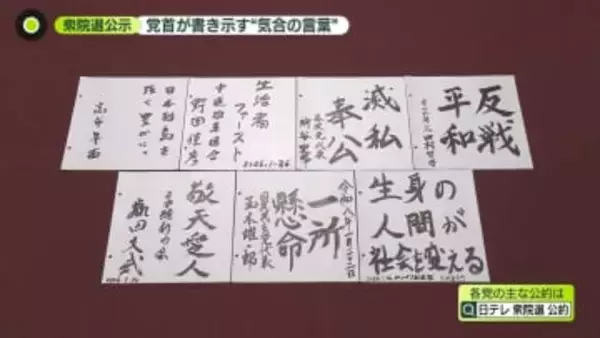 衆院選公示 党首が書き示す“気合の言葉”
日本列島を
強く豊かに
高市早苗
生活者
ファースト
中道改革連合
野田佳彦
2026.1.26
滅私
奉公
参政党代表
神谷宗幣
反戦
平和
敬天愛人
日本維新の会
藤田文武
令和八年一月二十二日
一所
懸命
国民民主党代表
玉木雄一郎
生身の
人間が
社会を変える
各党の主な公約は
日テレ 衆院選 公約